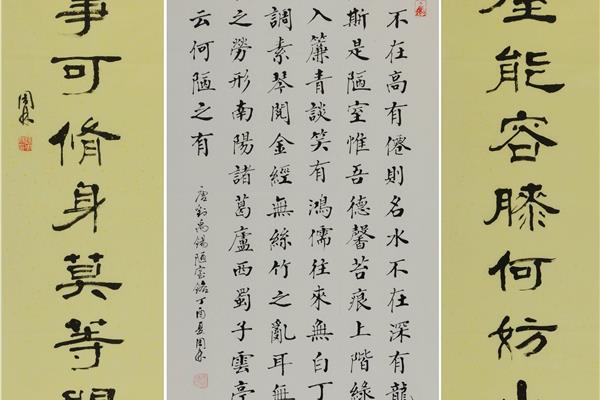 能容膝何妨
不在高有僊則名水不在深有龍
斯是陋室惟吾德馨苔痕上階綠
入簾青談笑有鴻儒往來無白丁
調素琴閱金經無絲竹之亂耳無
之勞形南陽諸葛廬西蜀子雲亭
云何陋之有
唐劉禹錫陋室銘丁酉夏周
事可脩身莫等
周